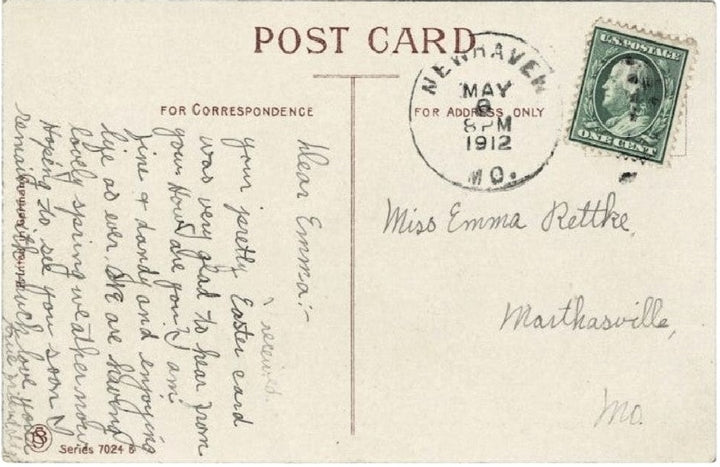 POST CARD
FOR CORRESPONDENCE
FOR ADDRESS ONLY
NEWHAVEN
MAY
6
8PM
1912
MO.
U.S. POSTAGE
ONE CENT
Dear Emma:-
received
your pretty Easter card
was very glad to hear from
you. How are you? I am
fine & dandy and enjoying
life as ever. We are having
lovely spring weather now.
Hoping to see you soon I
remain with much love your
Miss Emma Rettke,
Marthasville,
Mo.
Printed in Germany
Series 7024 B